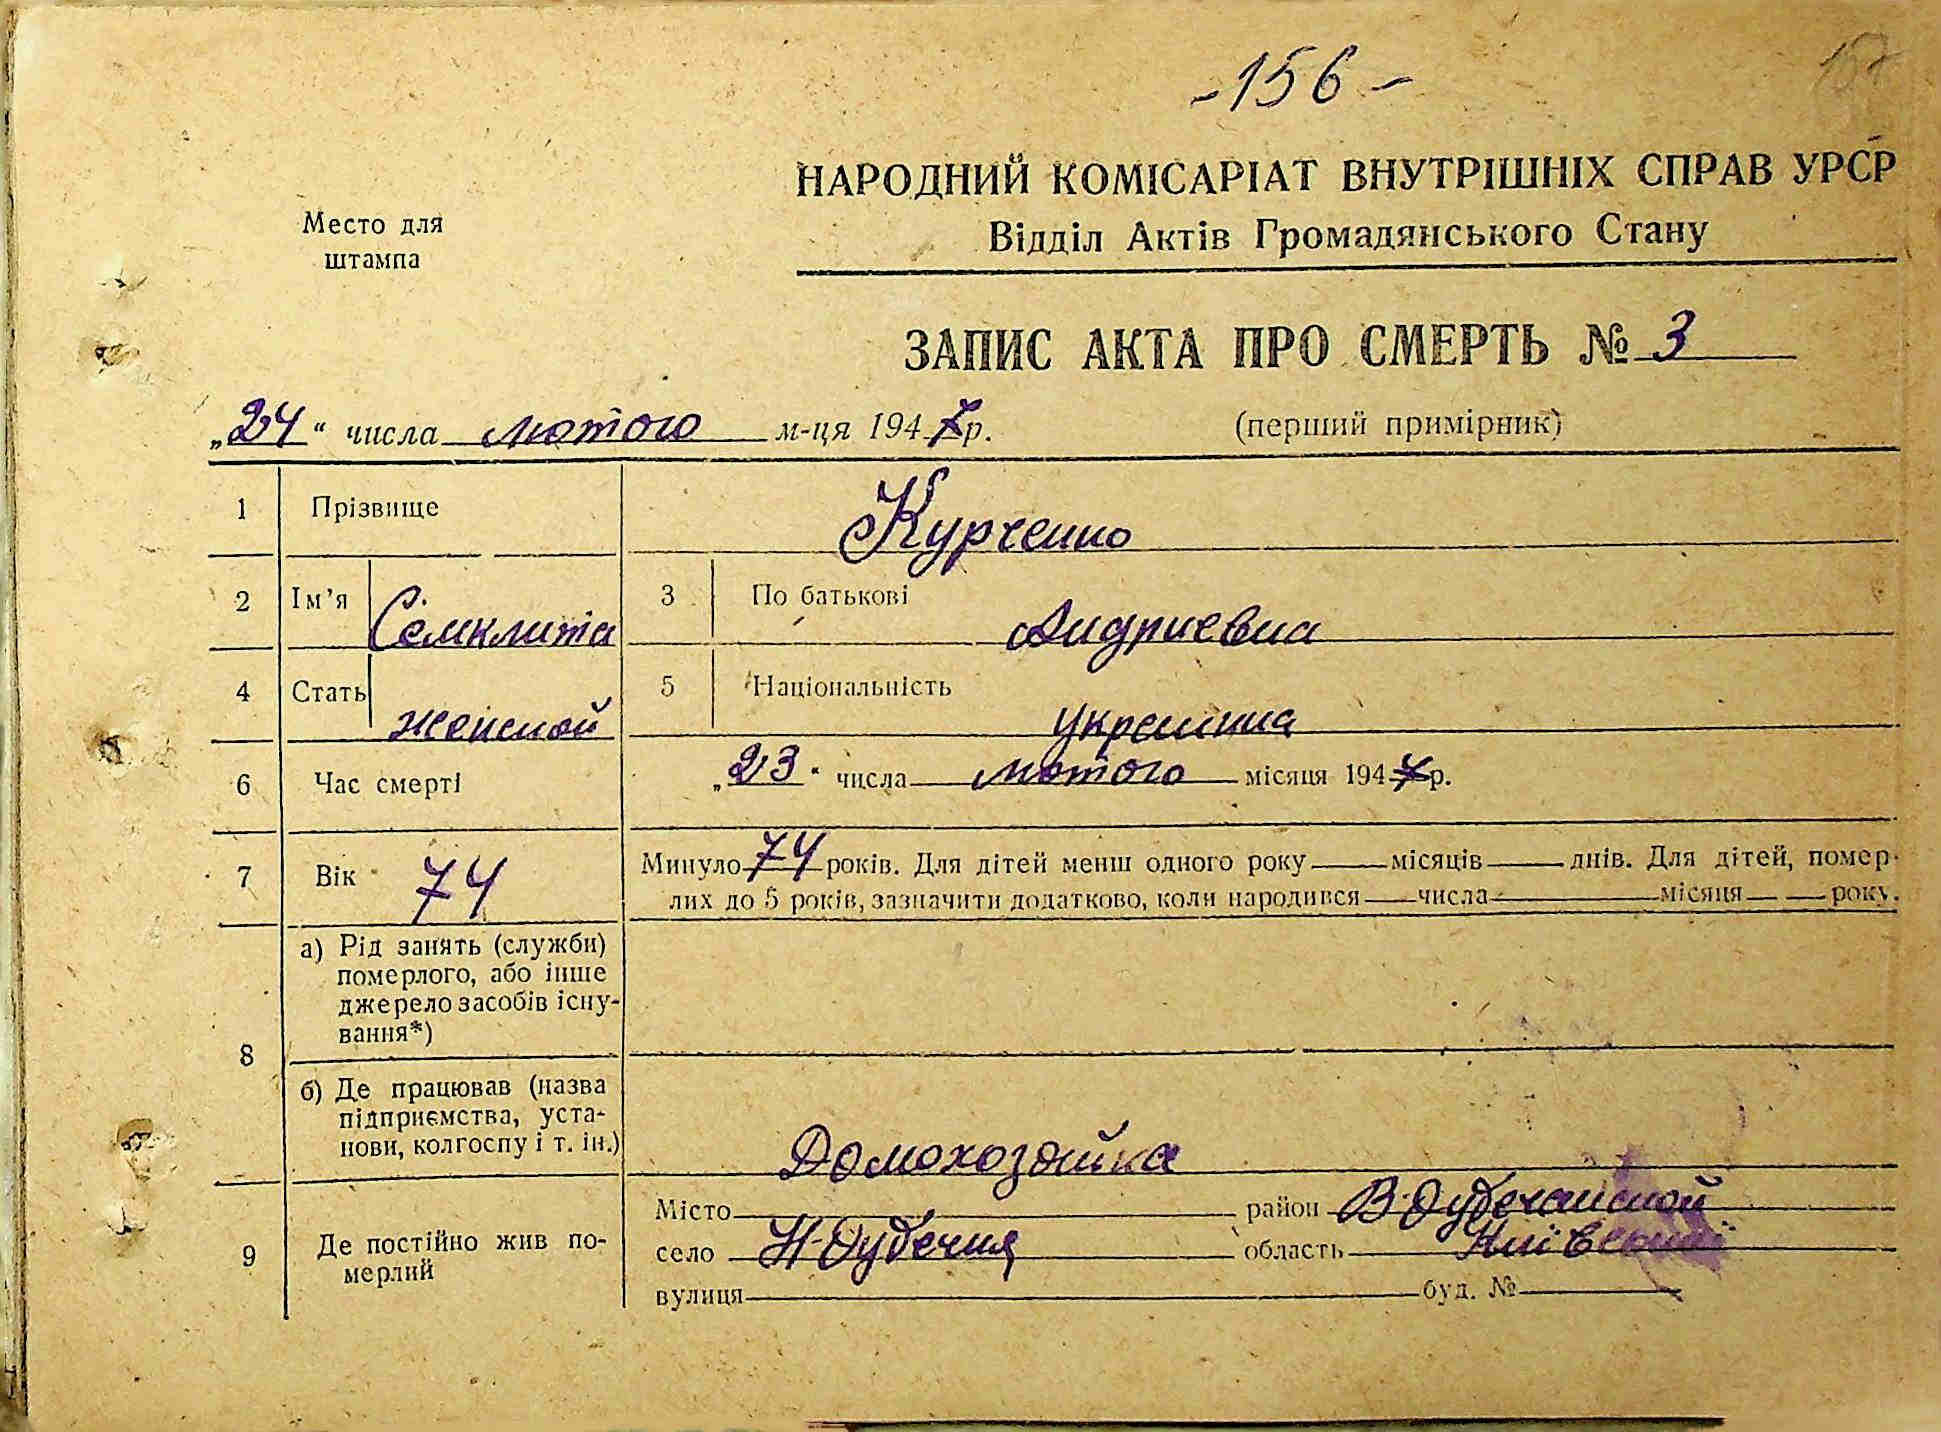 -156-
157
НАРОДНИЙ КОМІСАРІАТ ВНУТРІШНІХ СПРАВ УРСР
Місто для
штампа
Відділ Актів Громадянського Стану
ЗАПИС АКТА ПРО СМЕРТЬ № 3
„24“ числа лютого м-ця 1947 р. (перший примірник)
1 Прізвище Курченко
2 Ім’я Сёмклита 3 По батькові Андриевна
4 Стать женской 5 Національність украинка
6 Час смерті „23“ числа лютого місяця 1947 р.
7 Вік 74 Минуло 74 років. Для дітей менш одного року — місяців — днів. Для дітей, помер-
лих до 5 років, зазначити додатково, коли народився — числа — місяця — року.
8 а) Рід занять (служби)
померлого, або інше
джерело засобів існу-
вання*)
б) Де працював (назва
підприємства, уста-
нови, колгоспу і т. ін.) Домохозяйка
9 Де постійно жив по-
мерлий
Місто район В-Дубечанской
село Н-Дубечня область Київський
вулиця буд. №